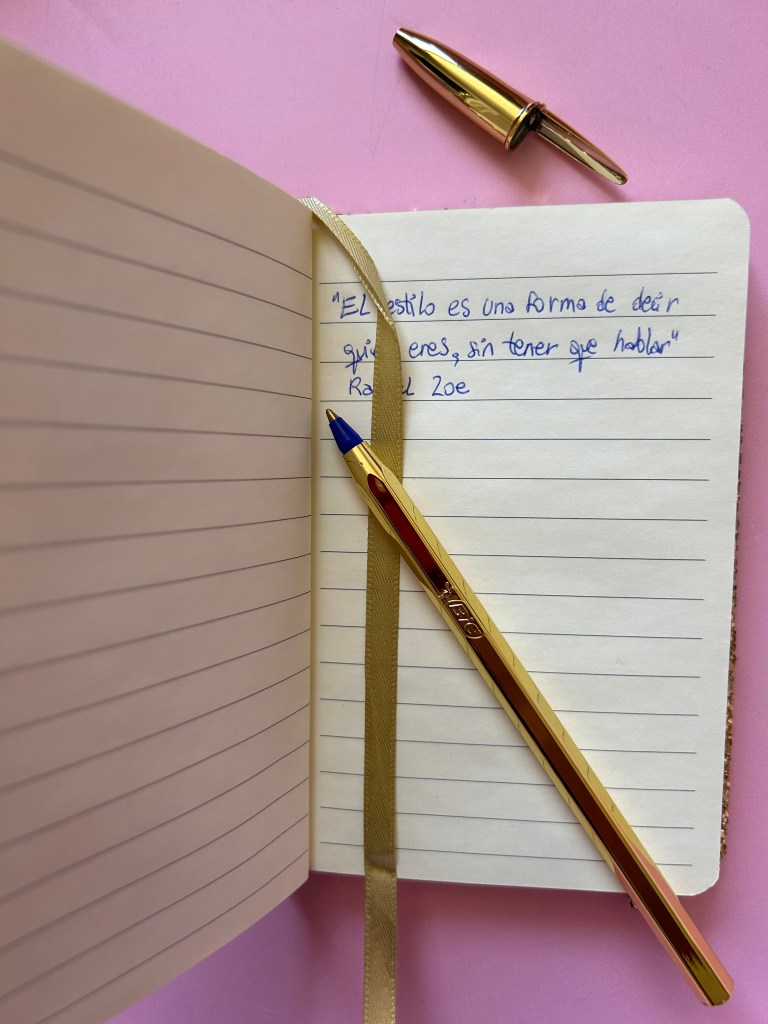 "EL estilo es una forma de decir
eres, sin tener que hablar"
Zoe
BIC